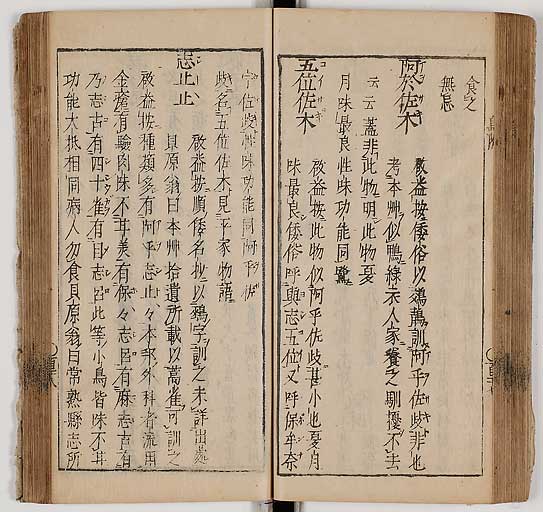 食之
無忌
阿於佐木
啟益按倭俗以鵁鶄訓阿乎佐岐非也
考本艸似鴨綠衣人家養之馴擾不去
云云蓋非此物明此物夏
月味最良性味功能同鷺
五位佐木
啟益按此物似阿乎佐岐甚小也夏月
味最良倭俗呼與志五位又呼保牟奈
宇佐岐性味功能同阿乎佐
岐名五位佐木見平家物語
志止止
啟益按順倭名抄以鵐字訓之未詳出處
貝原翁曰本艸拾遺所載以蒿雀可訓之
啟益按種類多有阿乎志止々本邦外科者流用
金瘡有驗肉味不甘美有保々志呂有麻志古有
乃志古有四十雀有目志呂此等小鳥皆味不甘
功能大抵相同病人勿食貝原翁曰常熟縣志所